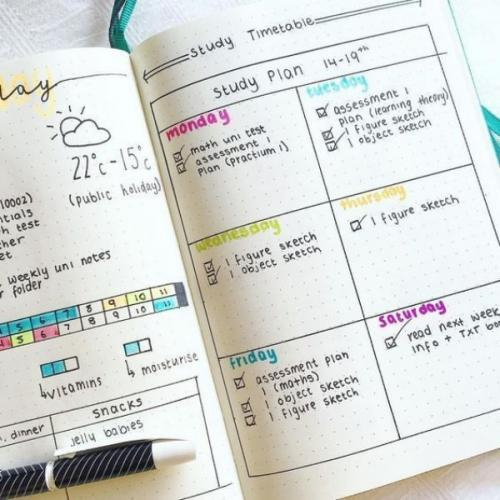 day
22°c - 15°c
(public holiday)
weekly uni notes
folder
5 6 7 8 9 10 11
5 6 7 8 9 10 11
vitamins
moisturise
snacks
dinner
jelly babies
Study Timetable
Study Plan 14-19th
monday
math uni test
assessment 1
plan (practium 1)
tuesday
assessment 1
plan (learning theory)
1 figure sketch
1 object sketch
wednesday
1 figure sketch
1 object sketch
thursday
1 figure sketch
friday
assessment plan
1 (maths)
1 object sketch
1 figure sketch
saturday
read next week
info + Txt